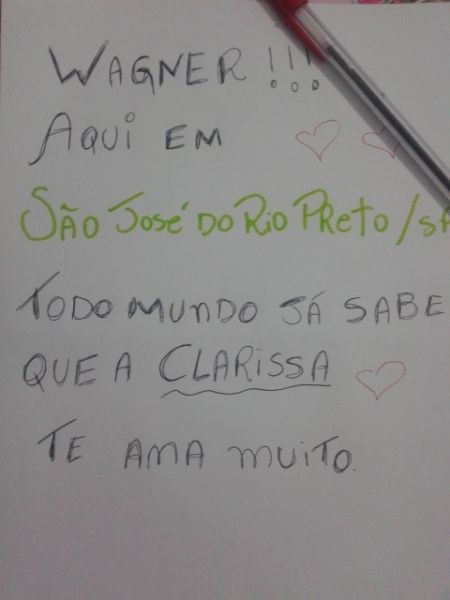 WAGNER!!!
AQUI EM
SÃO JOSÉ DO RIO PRETO/SP
TODO MUNDO JÁ SABE
QUE A CLARISSA
TE AMA MUITO.